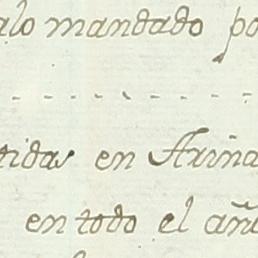 alo mandado po
tidas en Arina
en todo el añ